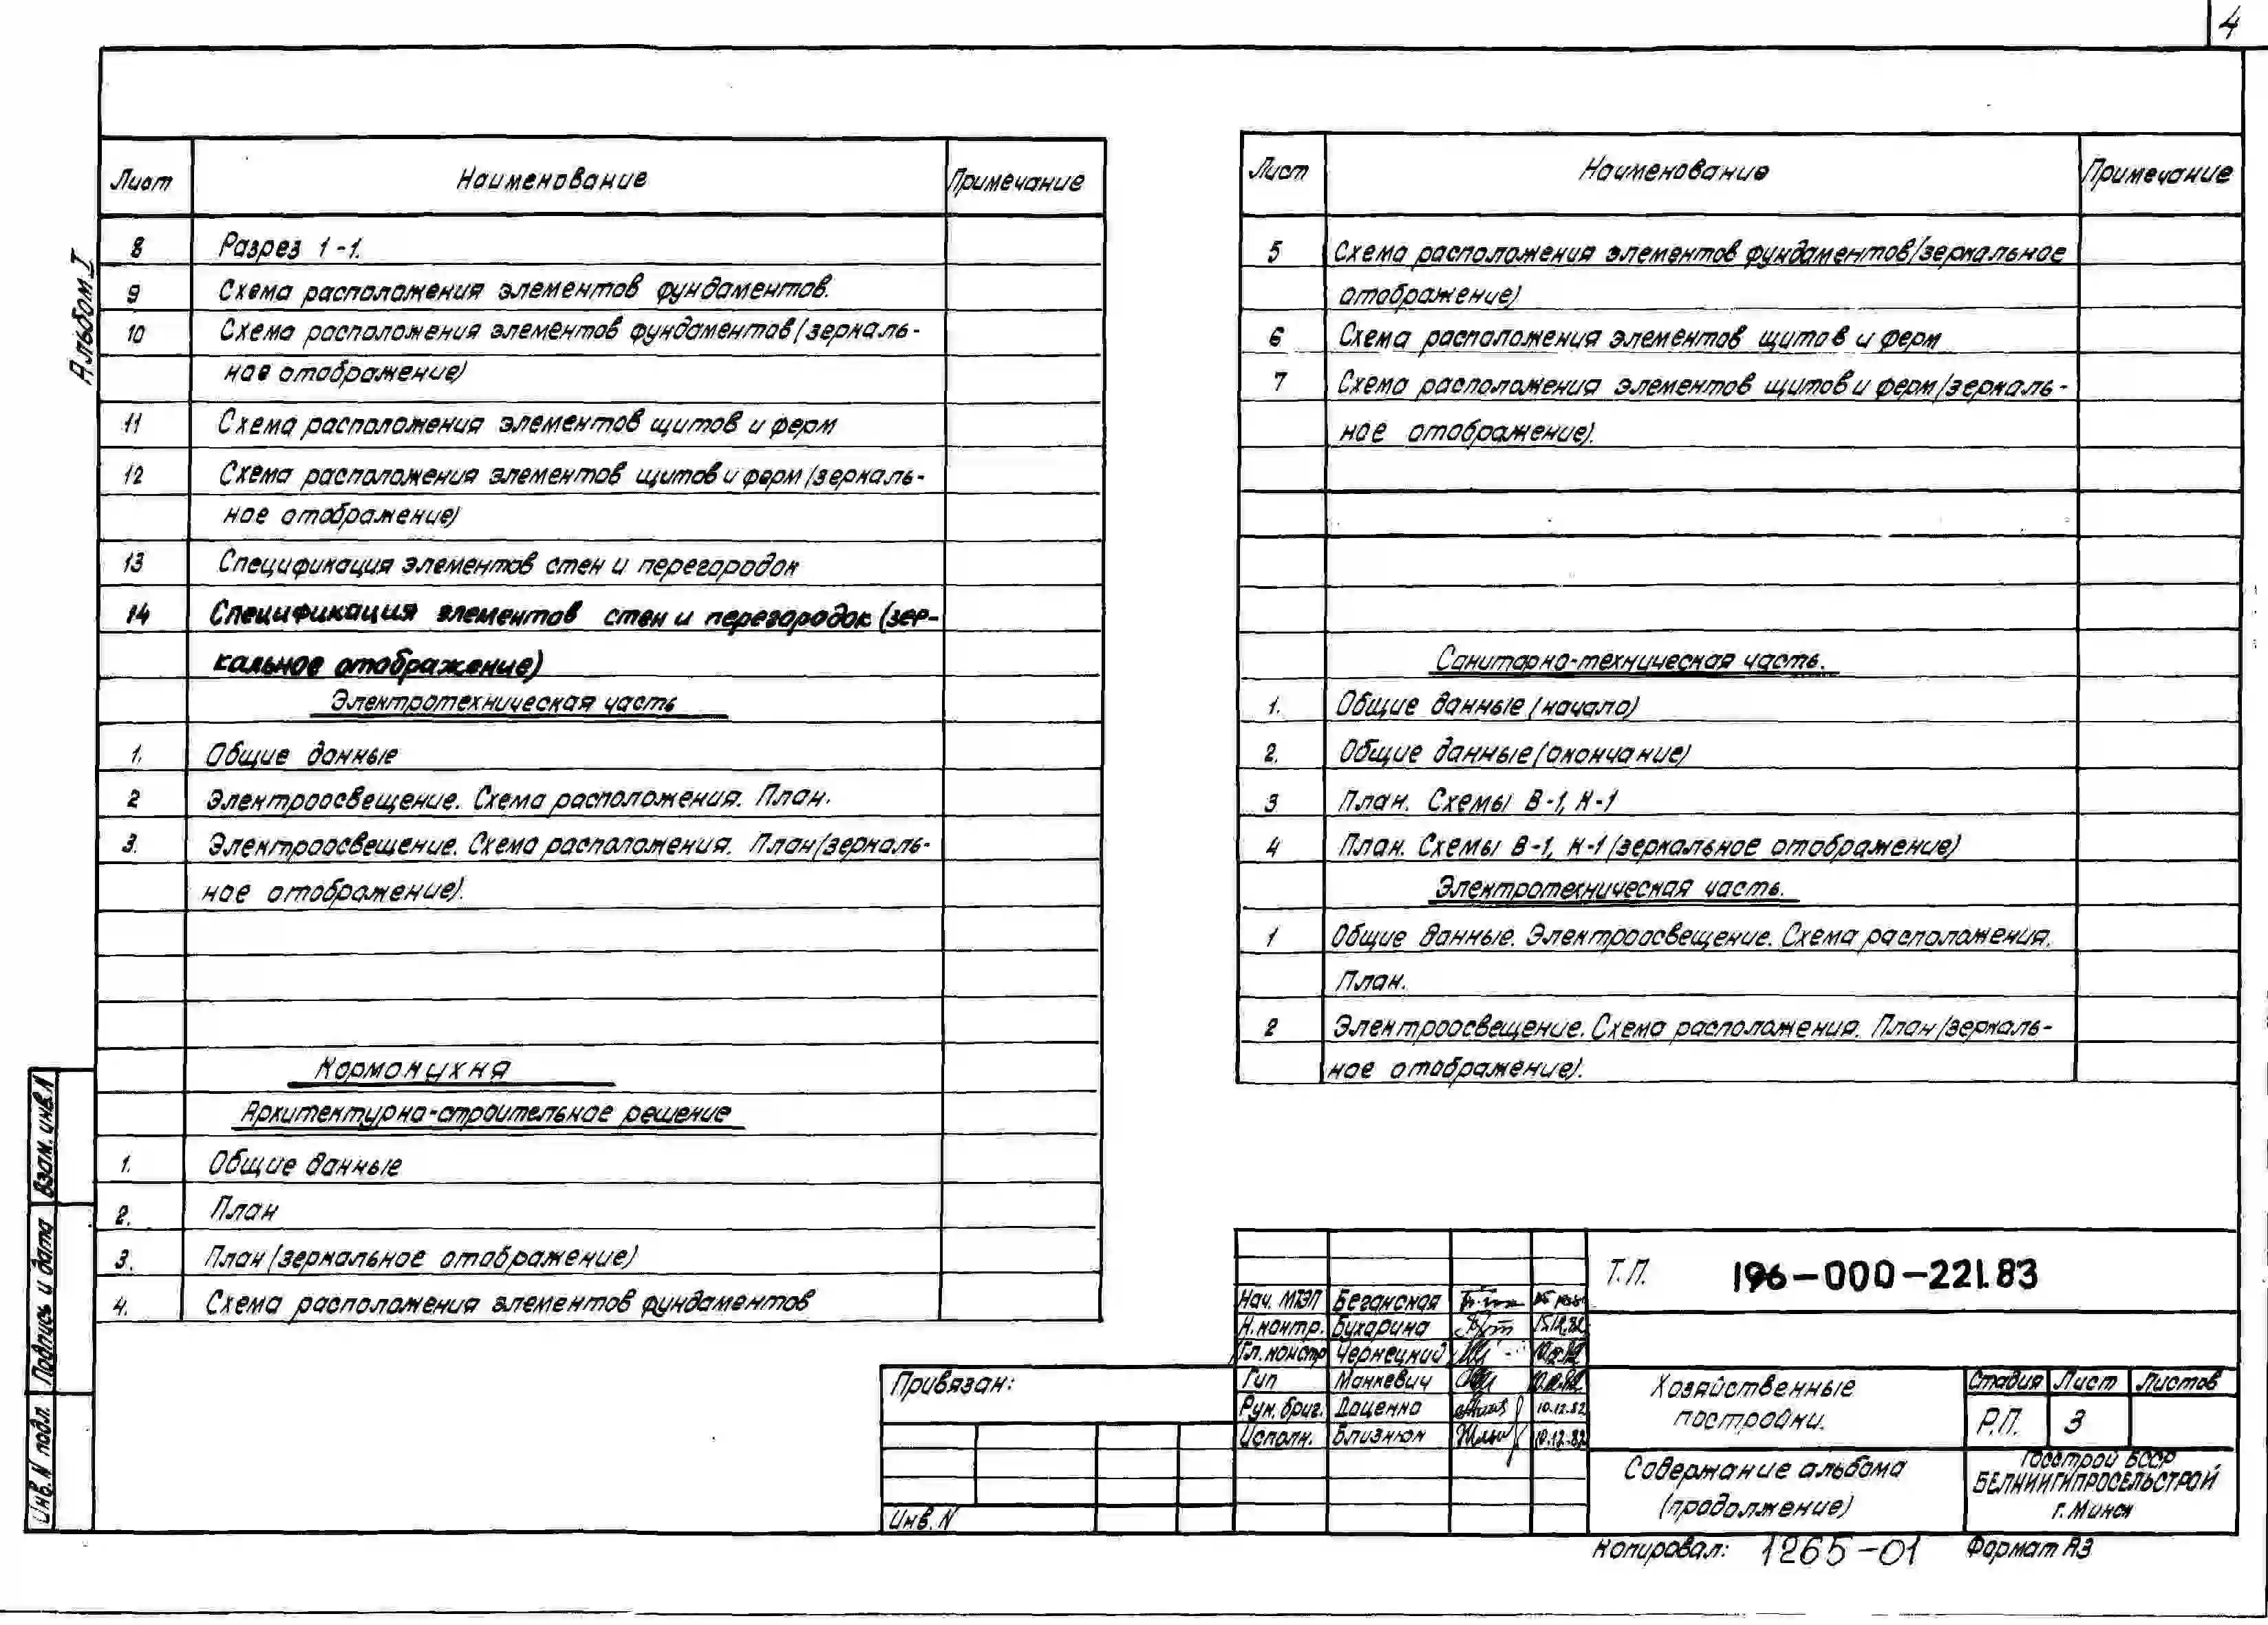 4
Альбом I
Лист Наименование Примечание
8 Разрез 1-1.
9 Схема расположения элементов фундаментов.
10 Схема расположения элементов фундаментов (зеркаль-
ное отображение)
11 Схема расположения элементов щитов и ферм
12 Схема расположения элементов щитов и ферм (зеркаль-
ное отображение)
13 Спецификация элементов стен и перегородок
14 Спецификация элементов стен и перегородок (зер-
кальное отображение)
Электротехническая часть
1. Общие данные
2 Электроосвещение. Схема расположения. План.
3. Электроосвещение. Схема расположения. План (зеркаль-
ное отображение).
Кормокухня
Архитектурно-строительное решение
1. Общие данные
2. План
3. План (зеркальное отображение)
4. Схема расположения элементов фундаментов
Лист Наименование Примечание
5 Схема расположения элементов фундаментов (зеркальное
отображение)
6 Схема расположения элементов щитов и ферм
7 Схема расположения элементов щитов и ферм (зеркаль-
ное отображение).
Санитарно-техническая часть.
1. Общие данные (начало)
2. Общие данные (окончание)
3 План. Схемы В-1, К-1
4 План. Схемы В-1, К-1 (зеркальное отображение)
Электротехническая часть.
1 Общие данные. Электроосвещение. Схема расположения.
План.
2 Электроосвещение. Схема расположения. План (зеркаль-
ное отображение).
Взам. инв. N
Подпись и дата
Инв. N подл.
Привязан:
Инв. N
Нач. МТЭП Беганская
Н. контр. Бухарина 15.12.82
Гл. констр Чернецкий
Гип Манкевич
Рук. бриг. Доценко 10.12.82
Исполн. Близнюк 10.12.82
Т.П. 196-000-221.83
Хозяйственные
постройки.
Стадия Лист Листов
Р.П. 3
Содержание альбома
(продолжение)
Госстрой БССР
БЕЛНИИГИПРОСЕЛЬСТРОЙ
г. Минск
Копировал: 1265-01 Формат А3